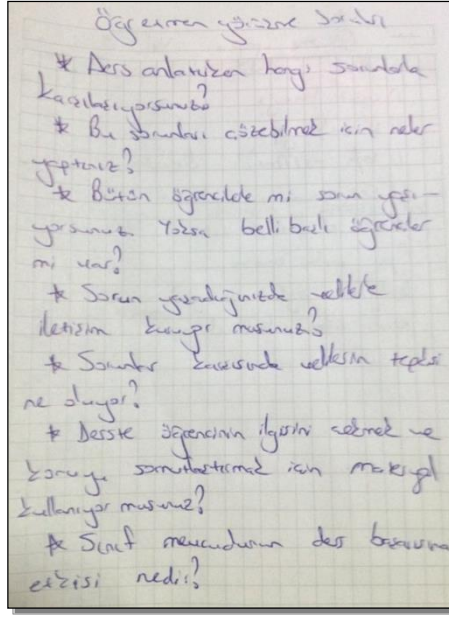 Öğretmen görüşme soruları
* Ders anlatırken hangi sorunlarla
karşılaşıyorsunuz?
* Bu sorunları çözebilmek için neler
yaptınız?
* Bütün öğrencilerle mi sorun yaşı-
yorsunuz Yoksa belli başlı öğrenciler
mi var?
* Sorun yaşadığınızda velilerle
iletişim kuruyor musunuz?
* Sorunlar karşısında velilerin tepkisi
ne oluyor?
* Derste öğrencinin ilgisini çekmek ve
konuyu somutlaştırmak için materyal
kullanıyor musunuz?
* Sınıf mevcudunun ders başarısına
etkisi nedir?